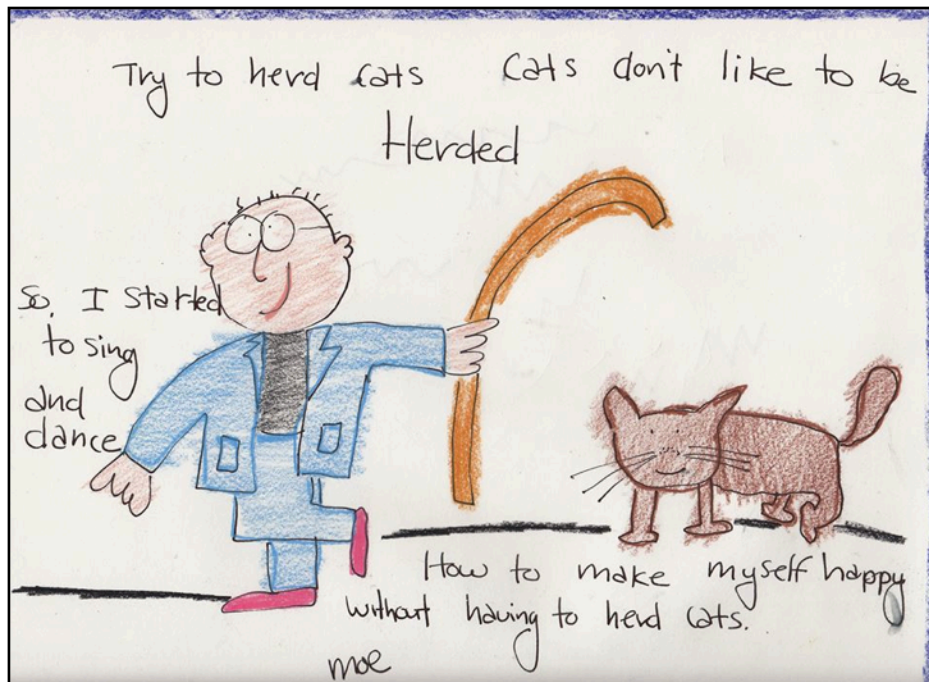 Try to herd cats Cats don't like to be
Herded
So, I started
to sing
and
dance
How to make myself happy
without having to herd cats.
moe